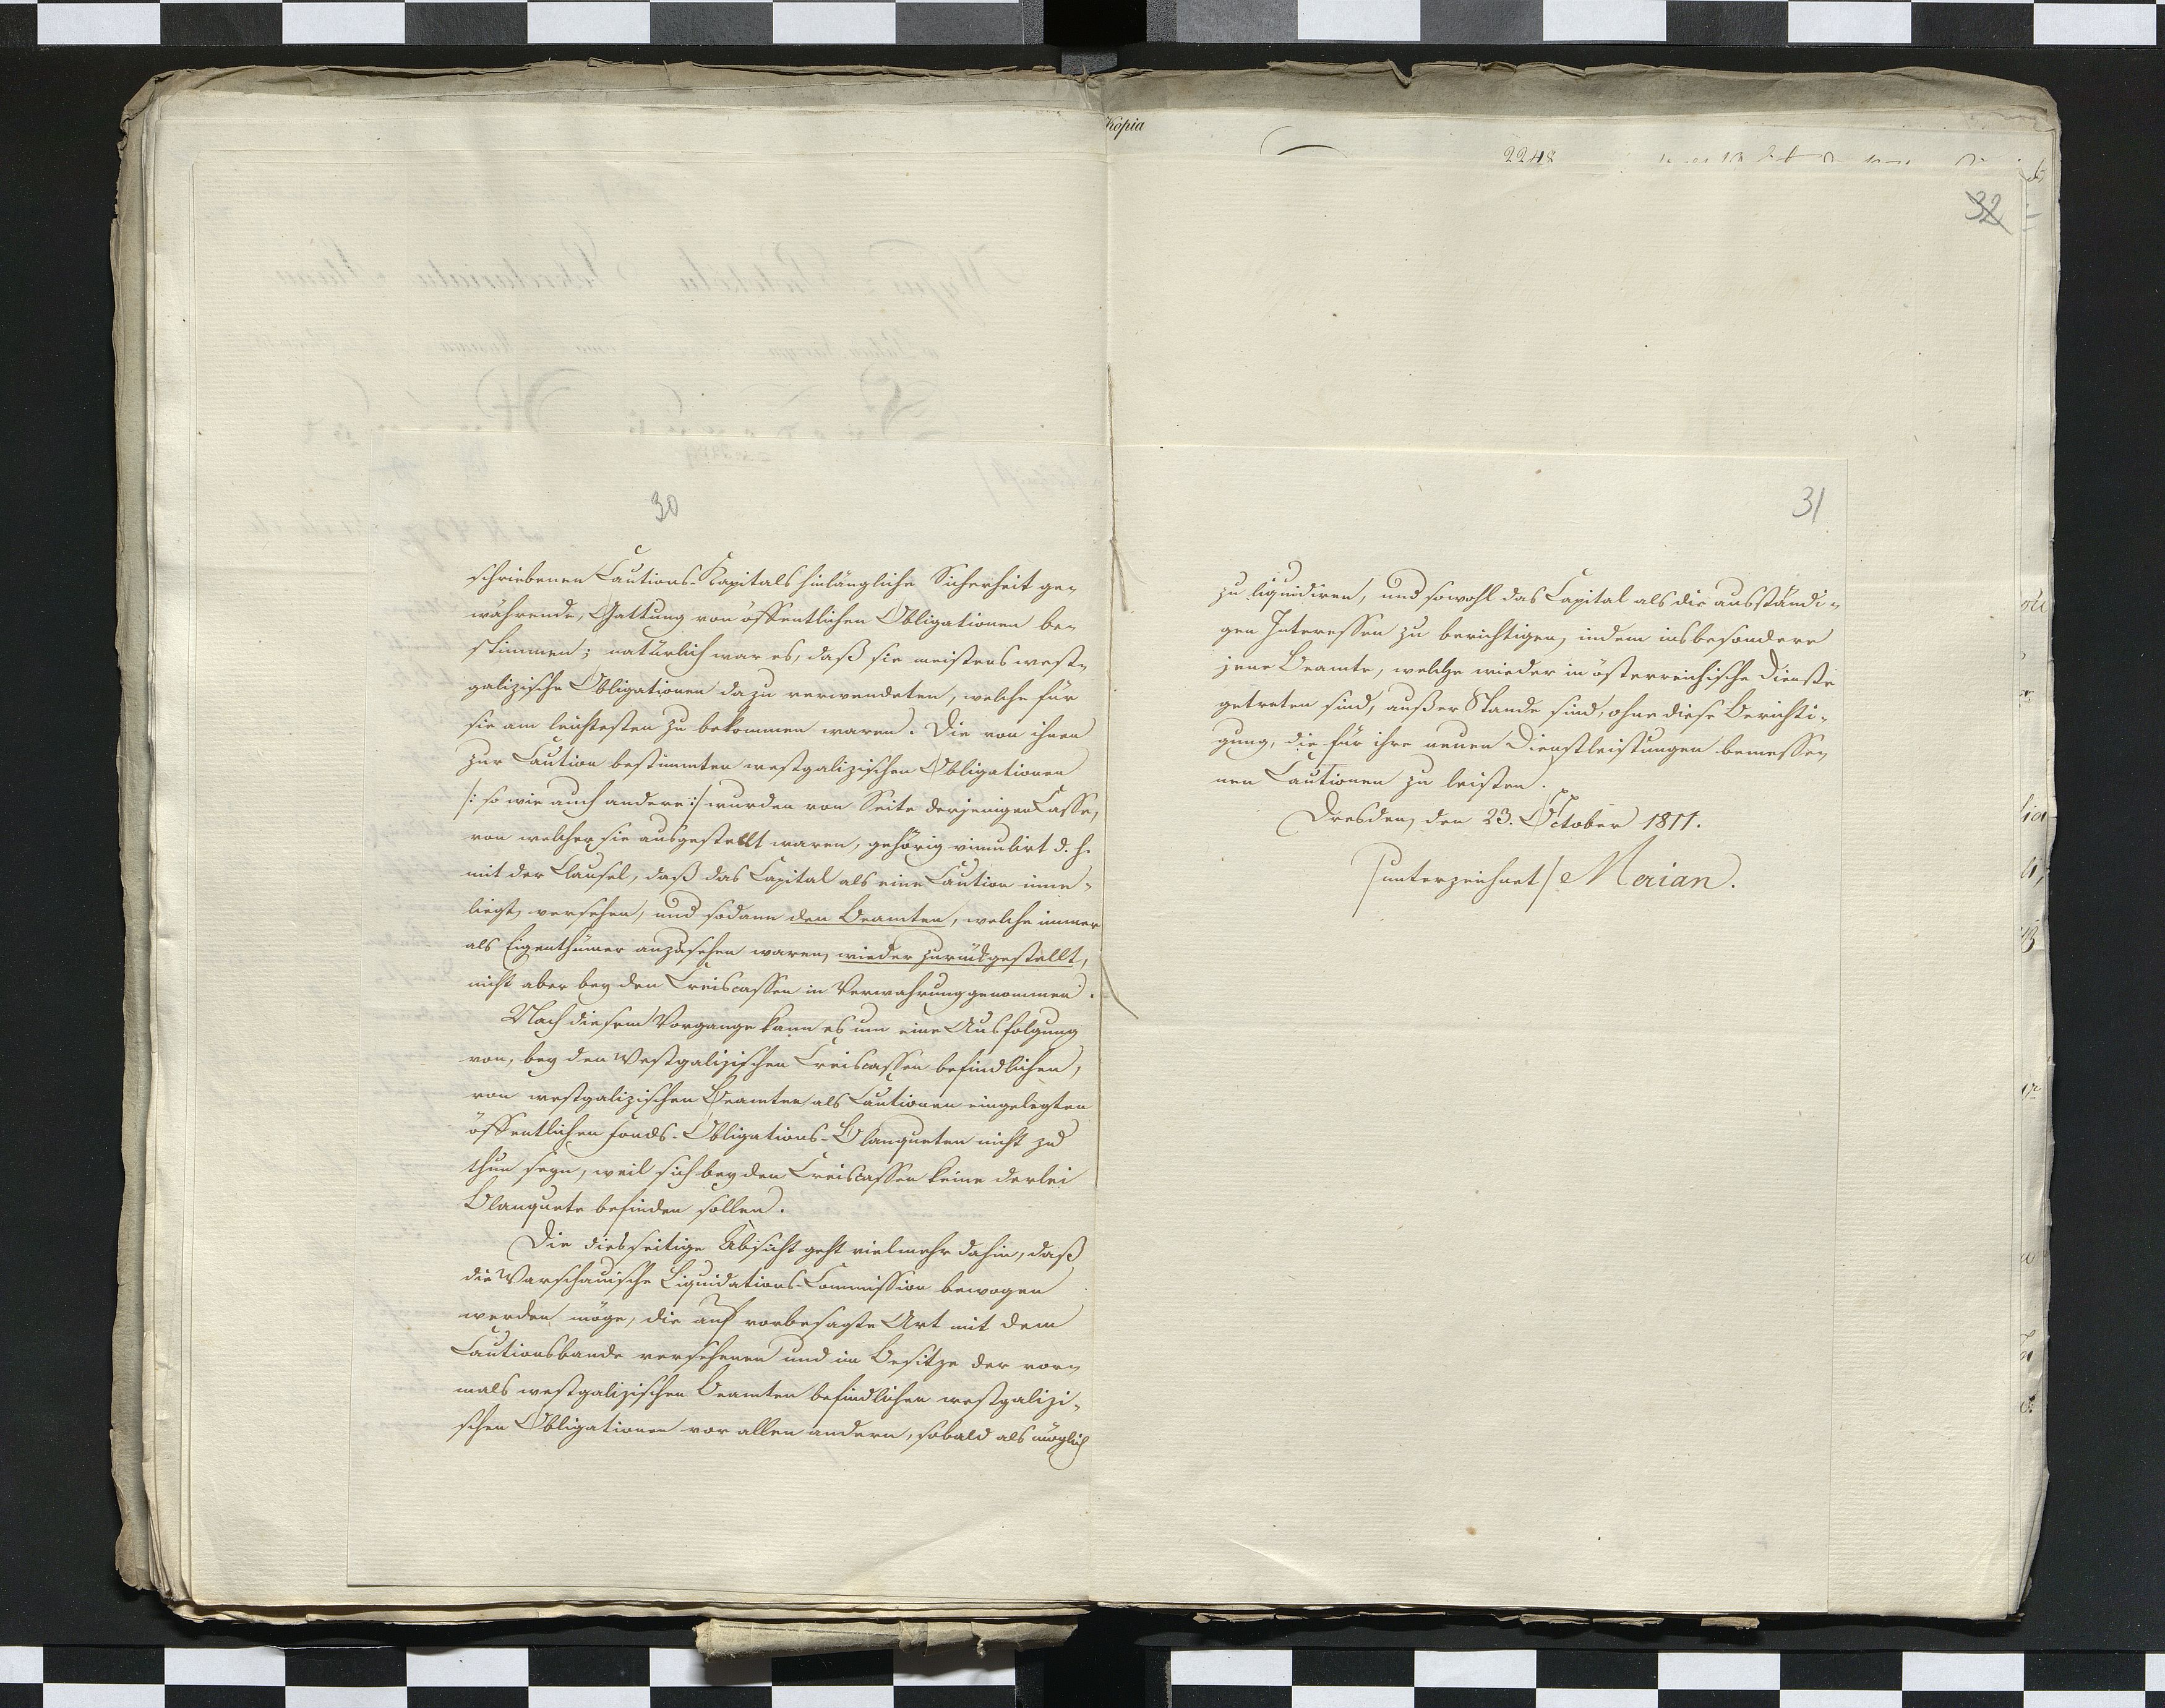 Kopia
2248
32
30
schriebenen Cautions-Kapitals hinlängliche Sicherheit ge-
während, Gattung von öffentlichen Obligationen be-
stimmen; natürlich war es, daß sie meistens west-
galizische Obligationen dazu verwendeten, welche für
sie am leichtesten zu bekommen waren. Die von ihnen
zur Caution bestimmten westgalizischen Obligationen
/: so wie auch andere :/ wurden von Seite derjenigen Casse,
von welcher sie ausgestellt waren, gehörig vinculirt d. h.
mit der Clausel, daß das Capital als eine Caution inne-
liegt, versehen, und sodann den Beamten, welche immer
als Eigenthümer anzusehen waren, wieder zurückgestellt,
nicht aber bey den Creiscassen in Verwahrung genommen.
Nach diesem Vorgange kann es um eine Ausfolgung
von, bey den Westgalizischen Creiscassen befindlichen,
von westgalizischen Beamten als Cautionen eingelegten
öffentlichen Fonds-Obligations-Blanqueten nicht zu
thun seyn, weil sich bey den Creiscassen keine derlei
Blanquete befinden sollen.
Die diesseitige Absicht geht vielmehr dahin, daß
die Warschauische Liquidations-Commission bewogen
werden möge, die auf vorbesagte Art mit dem
Cautionsbande versehenen und im Besitze der vor-
mals westgalizischen Beamten befindlichen westgalizi-
schen Obligationen vor allen andern, sobald als möglich
31
zu liquidiren, und sowohl das Capital als die ausständi-
gen Interessen zu berichtigen, indem insbesondere
jene Beamte, welche wieder in österreichische Dienste
getreten sind, außer Stande sind, ohne diese Berichti-
gung, die für ihre neuen Dienstleistungen bemesse-
nen Cautionen zu leisten.
Dresden, den 23. October 1811.
/unterzeichnet/ Merian.